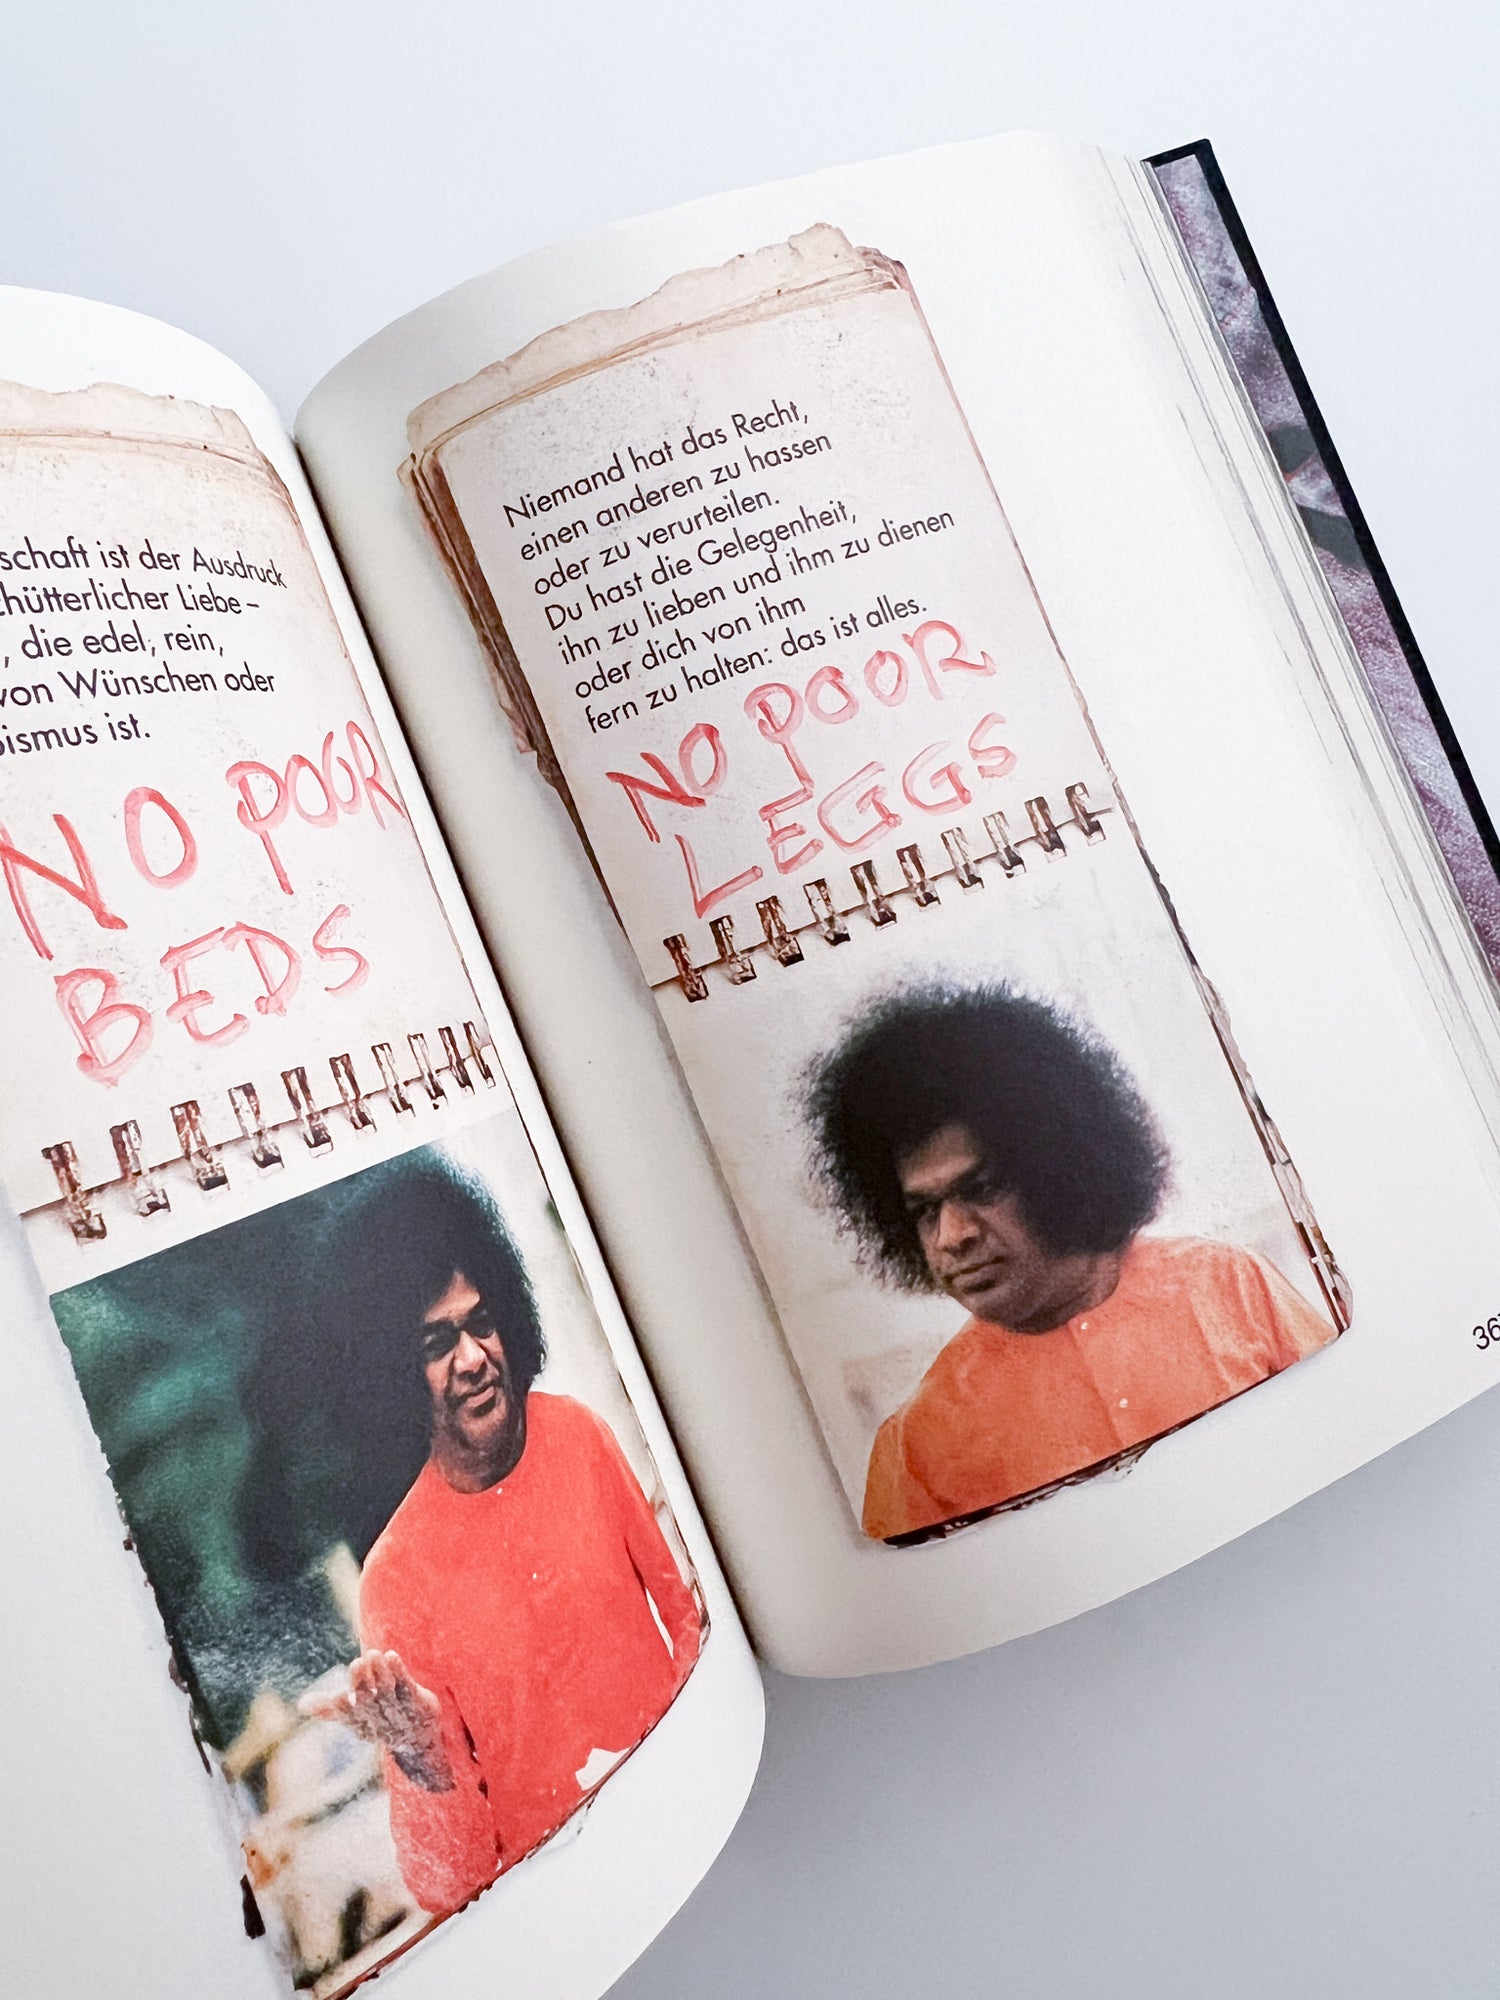 schaft ist der Ausdruck
hütterlicher Liebe –
, die edel, rein,
von Wünschen oder
ismus ist.
NO POOR
BEDS
Niemand hat das Recht,
einen anderen zu hassen
oder zu verurteilen.
Du hast die Gelegenheit,
ihn zu lieben und ihm zu dienen
oder dich von ihm
fern zu halten: das ist alles.
NO POOR
LEGGS